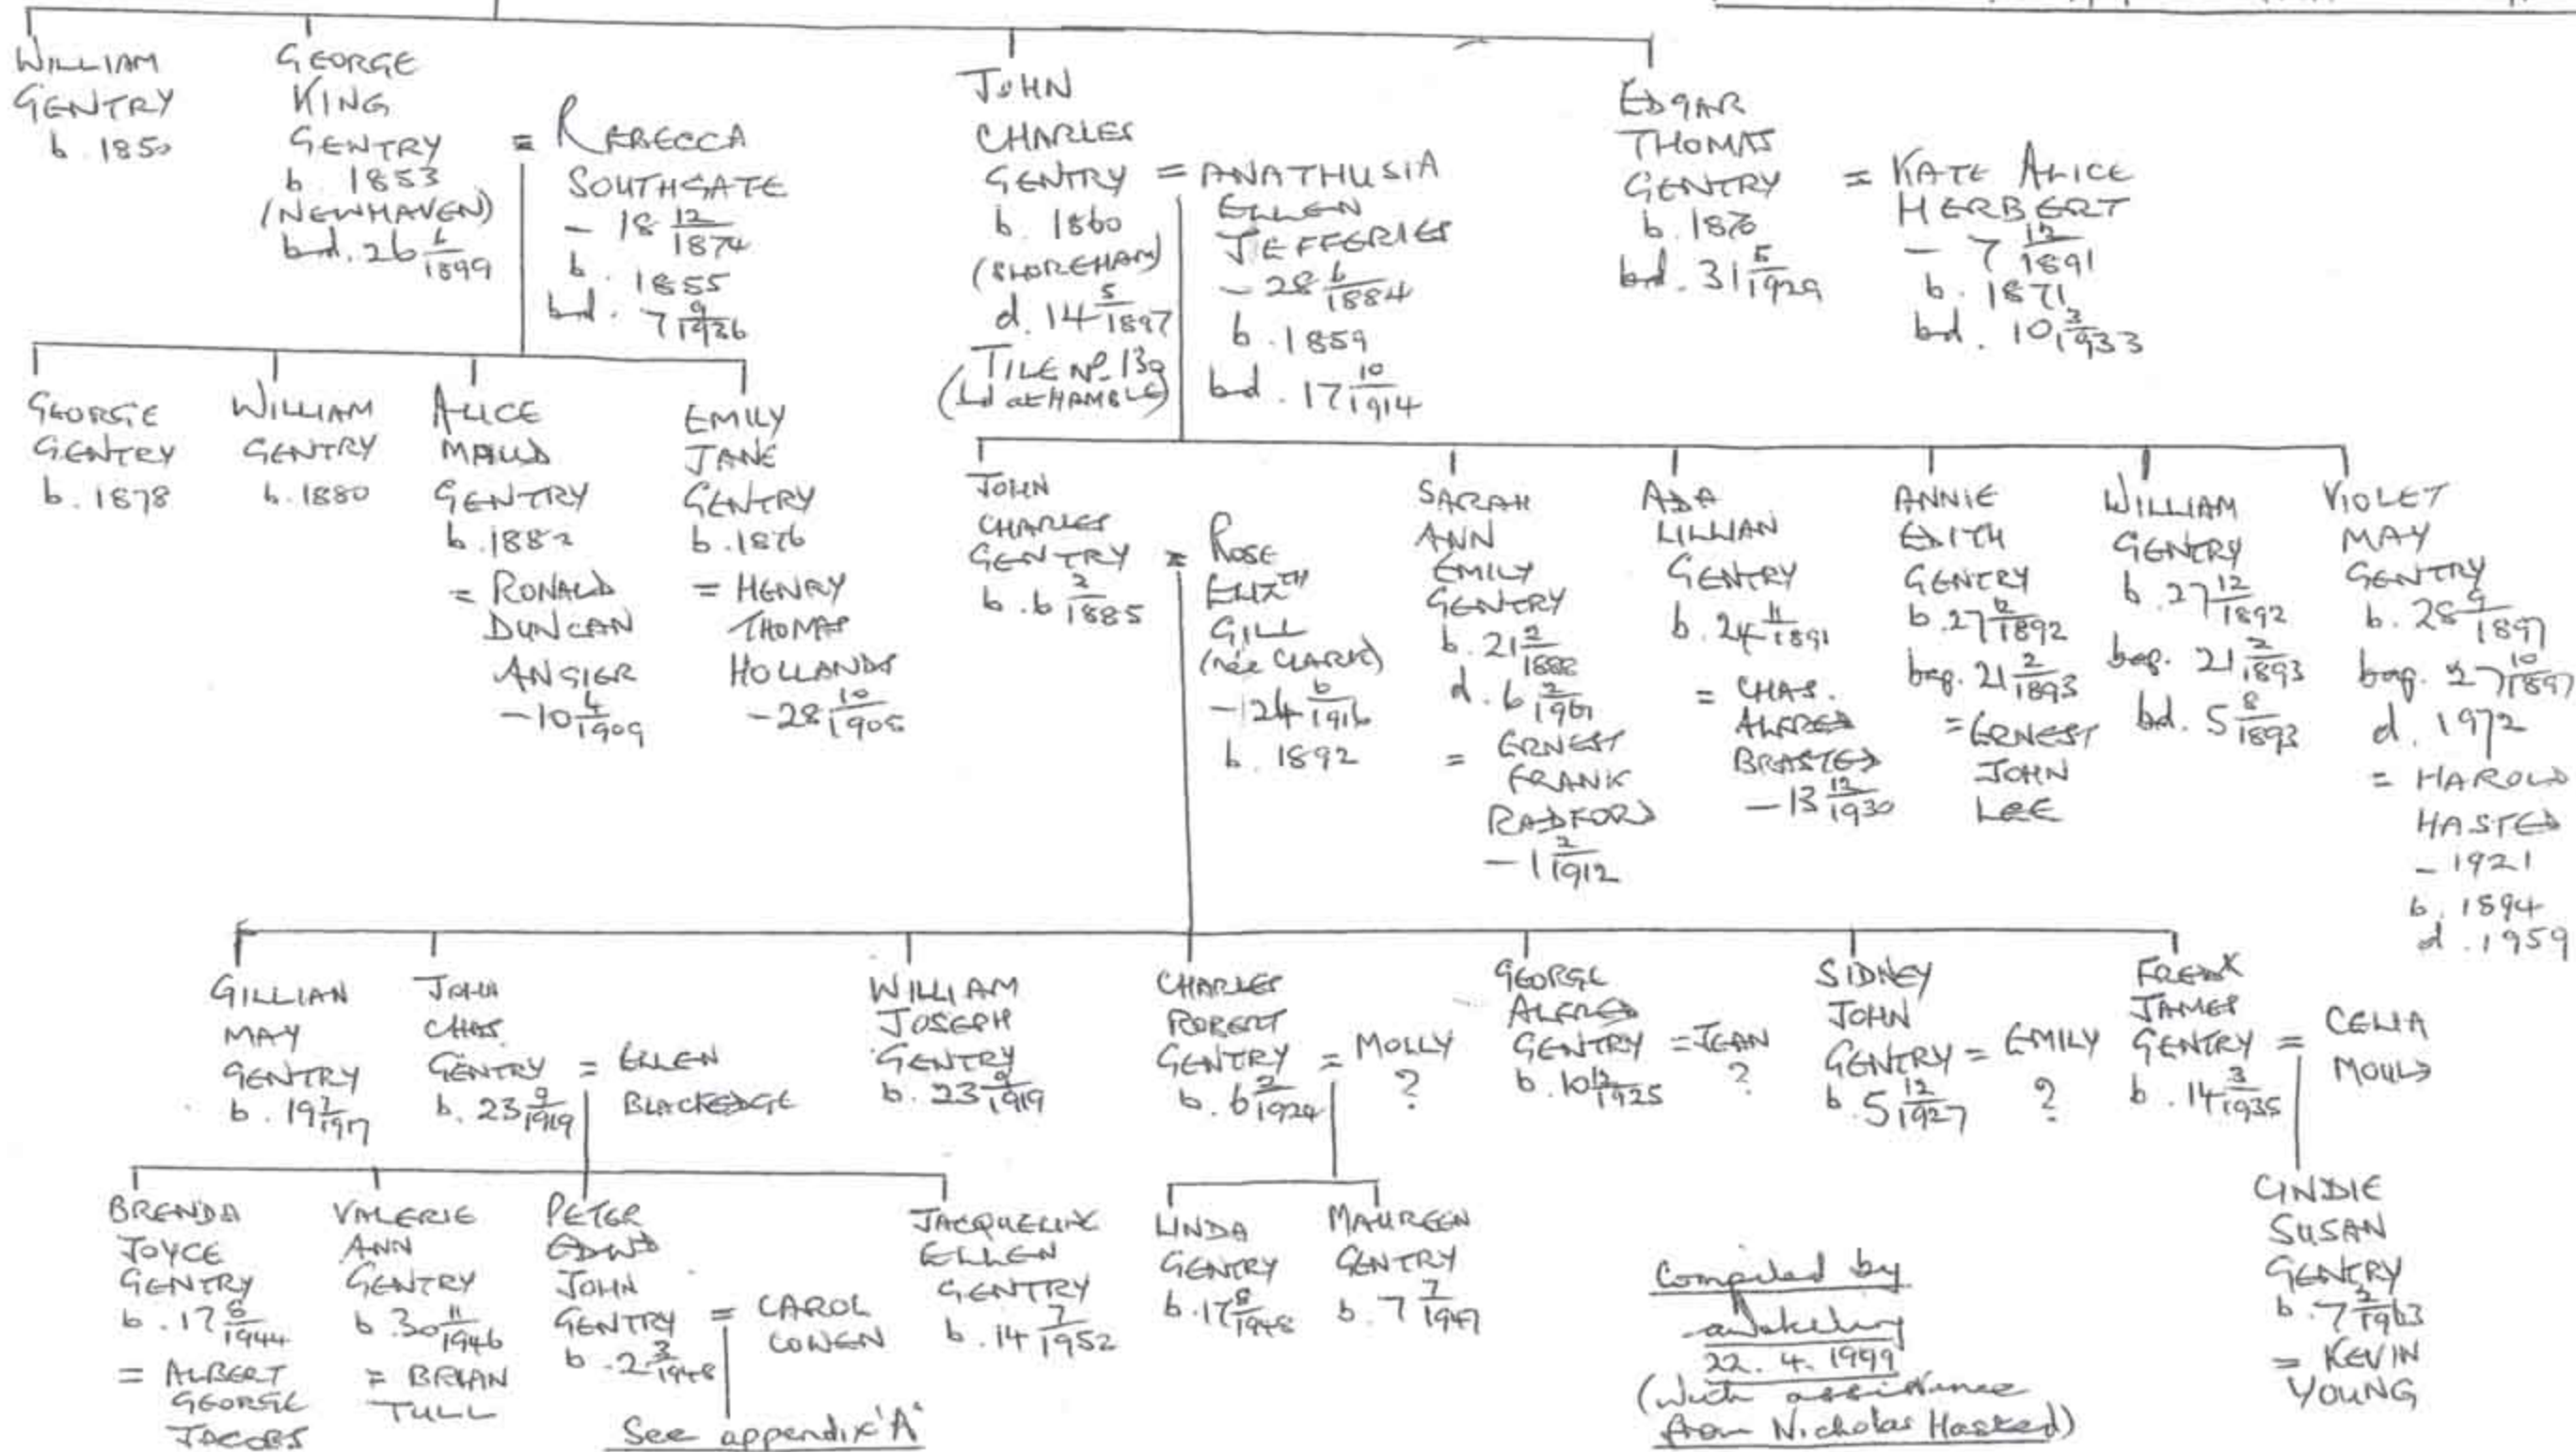 WILLIAM
GENTRY
b. 1850
GEORGE
KING
GENTRY
b. 1853
(NEWHAVEN)
bd. 26 6/1899
= REBECCA
SOUTHGATE
- 18 12/1874
b. 1855
bd. 7 9/1936
JOHN
CHARLES
GENTRY
b. 1860
(SHOREHAM)
d. 14 5/1897
TILE No. 130
(bd at HAMBLE)
= ANATHUSIA
ELLEN
JEFFERIES
- 28 6/1884
b. 1859
bd. 17 10/1914
EDGAR
THOMAS
GENTRY
bd. 31 5/1929
= KATE ALICE
HERBERT
- 7 12/1891
b. 1871
bd. 10 3/1933
GEORGE
GENTRY
b. 1878
WILLIAM
GENTRY
b. 1880
ALICE
MAUD
GENTRY
b. 1882
= RONALD
DUNCAN
ANGIER
- 10 4/1909
EMILY
JANE
GENTRY
b. 1876
= HENRY
THOMAS
HOLLANDS
- 28 10/1905
JOHN
CHARLES
GENTRY
b. 6 2/1885
= ROSE
ELIZTH
GILL
(née CLARK)
- 24 6/1916
b. 1892
SARAH
ANN
EMILY
GENTRY
b. 21 2/1888
d. 6 2/1961
= ERNEST
FRANK
RADFORD
- 1 2/1912
ADA
LILLIAN
GENTRY
b. 24 11/1891
= CHAS.
ALFRED
BRASTED
- 13 12/1930
ANNIE
EDITH
GENTRY
b. 27 12/1892
bap. 21 2/1893
= ERNEST
JOHN
LEE
WILLIAM
GENTRY
b. 27 12/1892
bap. 21 2/1893
bd. 5 8/1893
VIOLET
MAY
GENTRY
b. 28 9/1897
bap. 27 10/1897
d. 1972
= HAROLD
HASTED
- 1921
b. 1894
d. 1959
GILLIAN
MAY
GENTRY
b. 19 7/1917
JOHN
CHAS
GENTRY
b. 23 9/1919
= ELLEN
BLACKEDGE
WILLIAM
JOSEPH
GENTRY
b. 23 9/1919
CHARLES
ROBERT
GENTRY
b. 6 2/1924
= MOLLY
?
GEORGE
ALFRED
GENTRY
b. 10 12/1925
= JEAN
?
SIDNEY
JOHN
GENTRY
b. 5 12/1927
= EMILY
?
FREDK
JAMES
GENTRY
b. 14 3/1935
= CELIA
MOULD
BRENDA
JOYCE
GENTRY
b. 17 6/1944
= ALBERT
GEORGE
JACOBS
VALERIE
ANN
GENTRY
b. 30 11/1946
= BRIAN
TULL
PETER
EDWD
JOHN
GENTRY
b. 2 3/1948
= CAROL
COWEN
See appendix 'A'
JACQUELINE
ELLEN
GENTRY
b. 14 7/1952
LINDA
GENTRY
b. 17 8/1948
MAUREEN
GENTRY
b. 7 7/1947
CINDIE
SUSAN
GENTRY
b. 7 2/1963
= KEVIN
YOUNG
Compiled by
22. 4. 1999
(with assistance
from Nicholas Hasted)